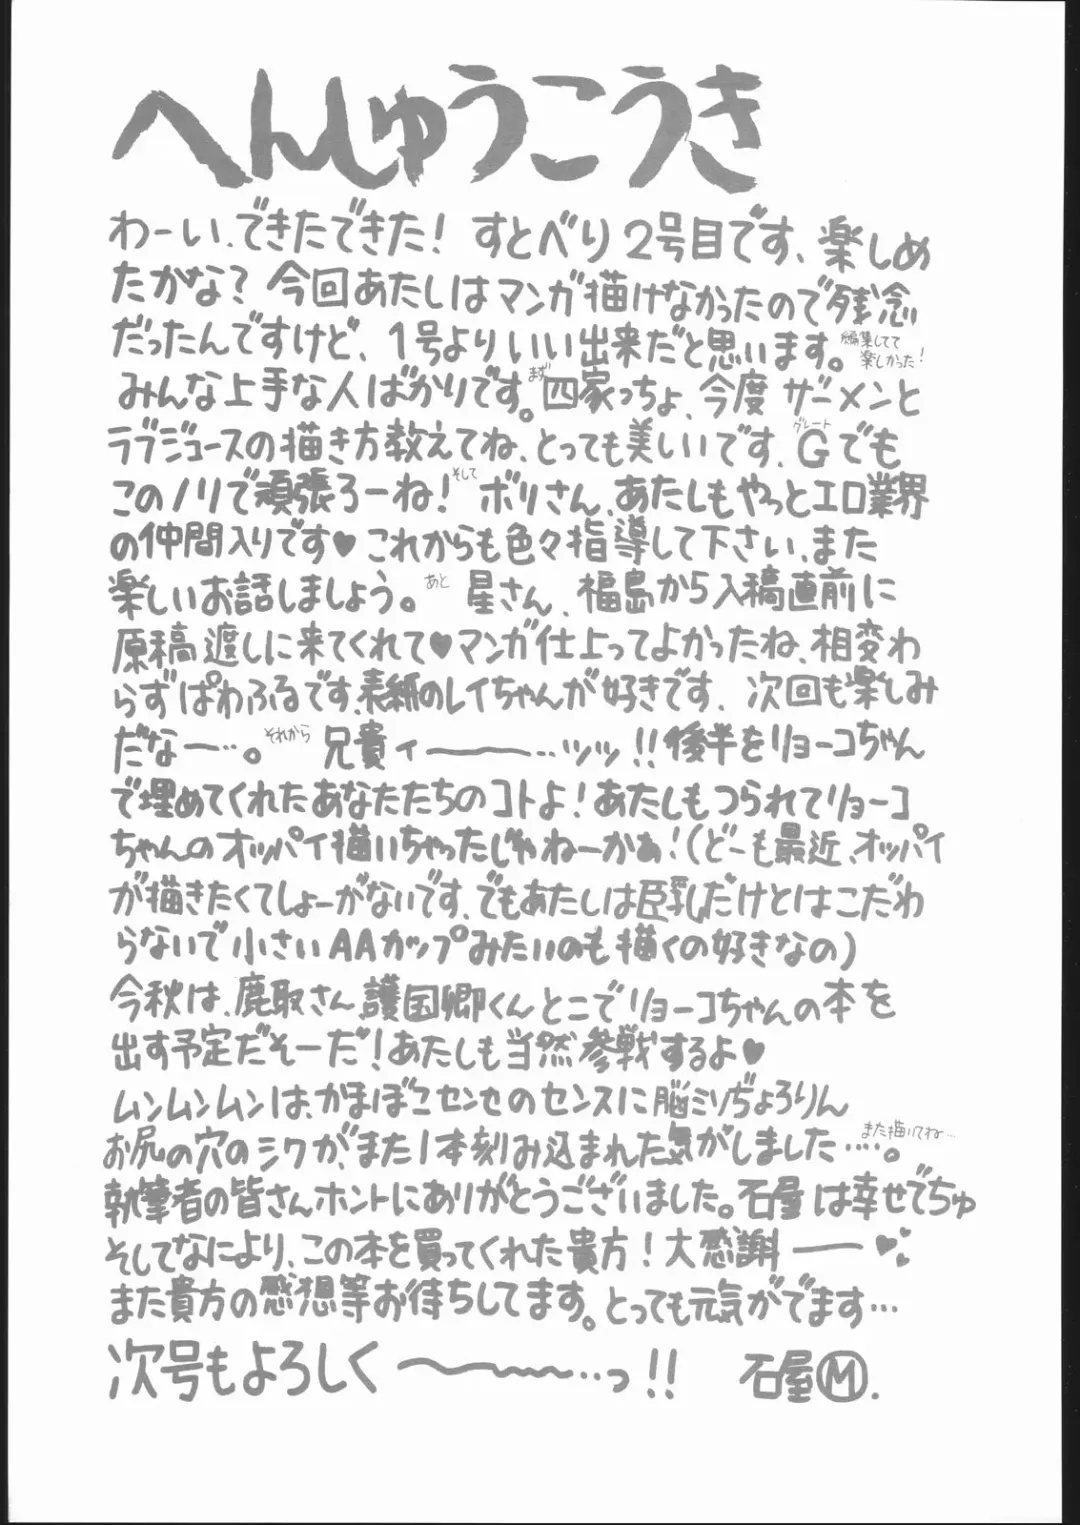 へんしゅうこうき
わーい、できたできた! すとべり2号目です、楽しめ
たかな? 今回あたしはマンガ描けなかったので残念
だったんですけど、1号よりいい出来だと思います。編集してて楽しかった!
みんな上手な人ばかりです。まず四家っちょ、今度ザーメンと
ラブジュースの描き方教えてね、とっても美しいです、G(グレート)でも
このノリで頑張ろーね! そして ボリさん、あたしもやっとエロ業界
の仲間入りです♥これからも色々指導して下さい、また
楽しいお話しましょう。あと 星さん、福島から入稿直前に
原稿渡しに来てくれて♥マンガ仕上ってよかったね、相変わ
らずぱわふるです、表紙のレイちゃんが好きです、次回も楽しみ
だなー…。それから 兄貴ィ――〜――…ッッ!!後半をリョーコちゃん
で埋めてくれたあなたたちのコトよ!あたしもつられてリョーコ
ちゃんのオッパイ描いちゃったじゃねーかぁ!(どーも最近、オッパイ
が描きたくてしょーがないです、でもあたしは巨乳だけとはこだわ
らないで小さいAAカップみたいのも描くの好きなの)
今秋は、鹿取さん、護国卿くんとこでリョーコちゃんの本を
出す予定だそーだ!あたしも当然参戦するよ♥
ムンムンムンは、かまぼこセンセのセンスに脳ミソぢょろりん
お尻の穴のシワが、また1本刻み込まれた気がしました…。また描いてね…
執筆者の皆さんホントにありがとうございました。石屋は幸せでちゅ
そしてなにより、この本を買ってくれた貴方!大感謝――♥
また貴方の感想等お待ちしてます。とっても元気がでます…
次号もよろしく〜――…っ!! 石屋Ⓜ.